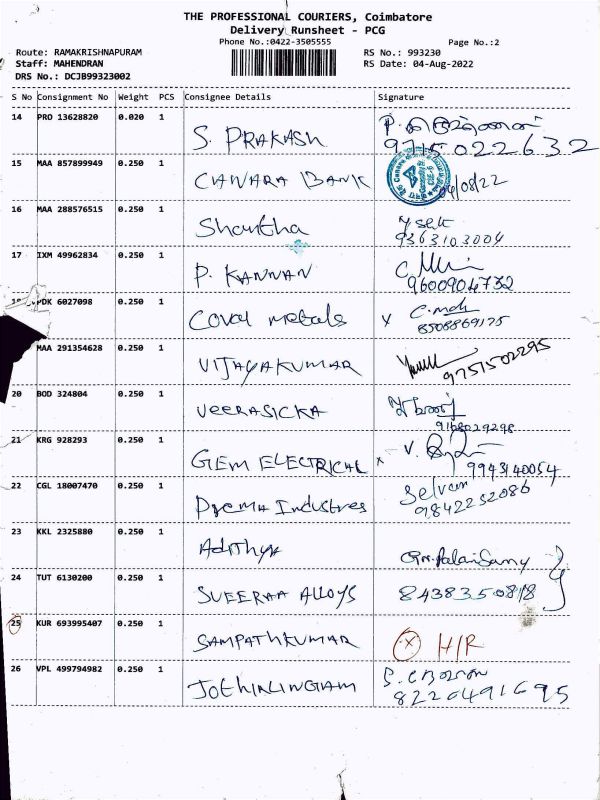 THE PROFESSIONAL COURIERS, Coimbatore
Delivery Runsheet - PCG
Phone No.:0422-3505555
Page No.:2
Route: RAMAKRISHNAPURAM
RS No.: 993230
Staff: MAHENDRAN
RS Date: 04-Aug-2022
DRS No.: DCJB99323002
S No Consignment No Weight PCS Consignee Details Signature
14 PRO 13628820 0.020 1
S. PRAKASH 9715022632
15 MAA 857899949 0.250 1
CANARA BANK 04/08/22
16 MAA 288576515 0.250 1
Shantha 9363103004
17 IXM 49962834 0.250 1
P. KANNAN 9600904732
PDK 6027098 0.250 1
Coval metals x C. 8508869175
MAA 291354628 0.250 1
VIJAYAKUMAR 9751502295
20 BOD 324804 0.250 1
VEERASICKA
21 KRG 928293 0.250 1
GEM ELECTRICAL x V. 9943140054
22 CGL 18007470 0.250 1
Prema Industres Selvam 9842252086
23 KKL 2325880 0.250 1
Adithya
24 TUT 6130200 0.250 1
SUEERAA ALLOYS 8438350818
25 KUR 693995407 0.250 1
SAMPATHKUMAR X H/R
26 VPL 499794982 0.250 1
JOTHIRLINGIAM 8220491695